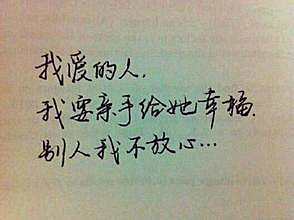 我爱的人，
我要亲手给她幸福，
别人我不放心…